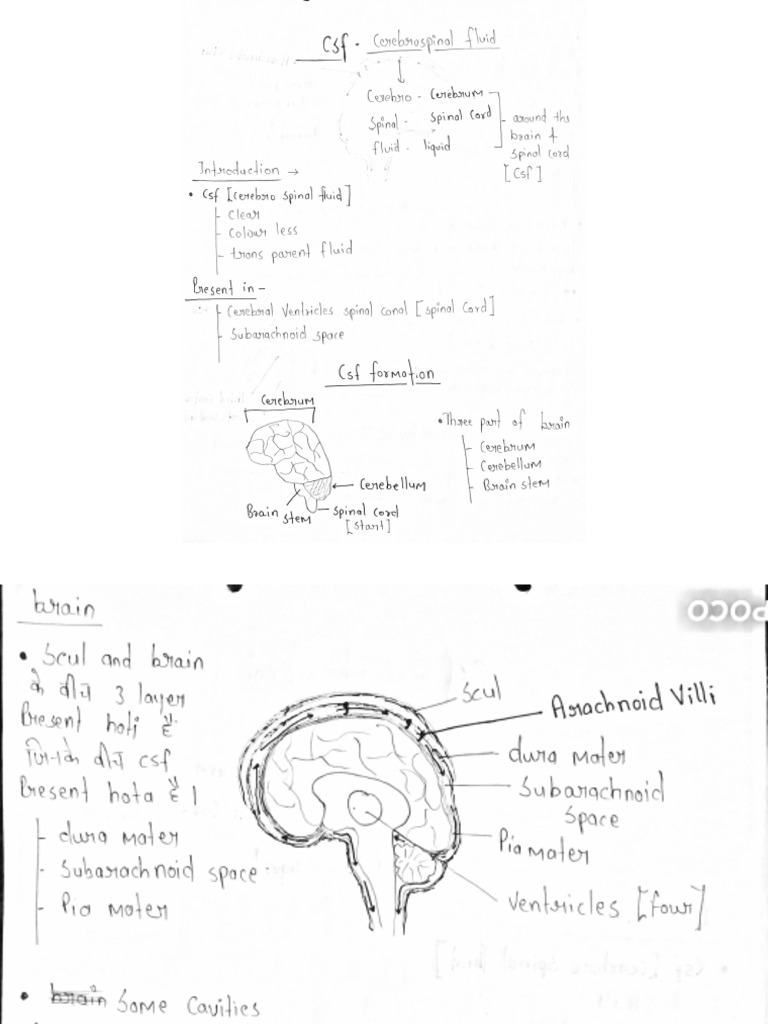 Csf - Cerebrospinal fluid
Cerebro - Cerebrum
Spinal - Spinal Cord
fluid - liquid
around the
brain &
spinal cord
[Csf]
Introduction →
• Csf [Cerebro spinal fluid]
- Clear
- Colour less
- trans parent fluid
Present in -
- Cerebral Ventricles spinal canal [spinal Cord]
- Subarachnoid space
Csf formation
Cerebrum
Cerebellum
Brain stem
Spinal Cord
[start]
• Three part of brain
- Cerebrum
- Cerebellum
- Brain stem
brain
POCO
• Scul and brain
के बीच 3 layer
Present hoti है
जिनके बीच csf
Present hota है।
- dura mater
- Subarachnoid space
- Pia mater
Scul
Arachnoid Villi
dura mater
Subarachnoid
space
Pia mater
ventricles [four]
• brain Some Cavities